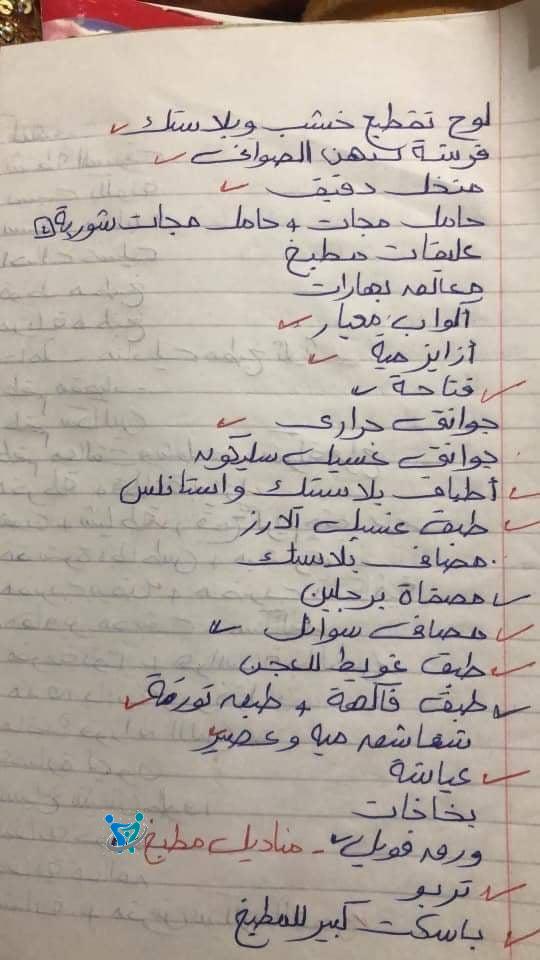 لوح تقطيع خشب وبلاستك
فرشة دهن الصوانى
منخل دقيق
حامل مجات + حامل مجات شوربة
عليقات مطبخ
معالق بهارات
أكواب معيار
أزايز مية
فتاحة
جوانتى حرارى
جوانتى غسيل سليكون
أطباق بلاستك واستانلس
طبق غسيل الارز
مصافى بلاستك
مصفاة برجلين
مصافى سوائل
طبق غويط للعجن
طبق فاكهة + طبق تورتة
شفاشق مية وعصير
عياشة
بخاخات
ورق فويل - مناديل مطبخ
تربو
باسكت كبير للمطبخ